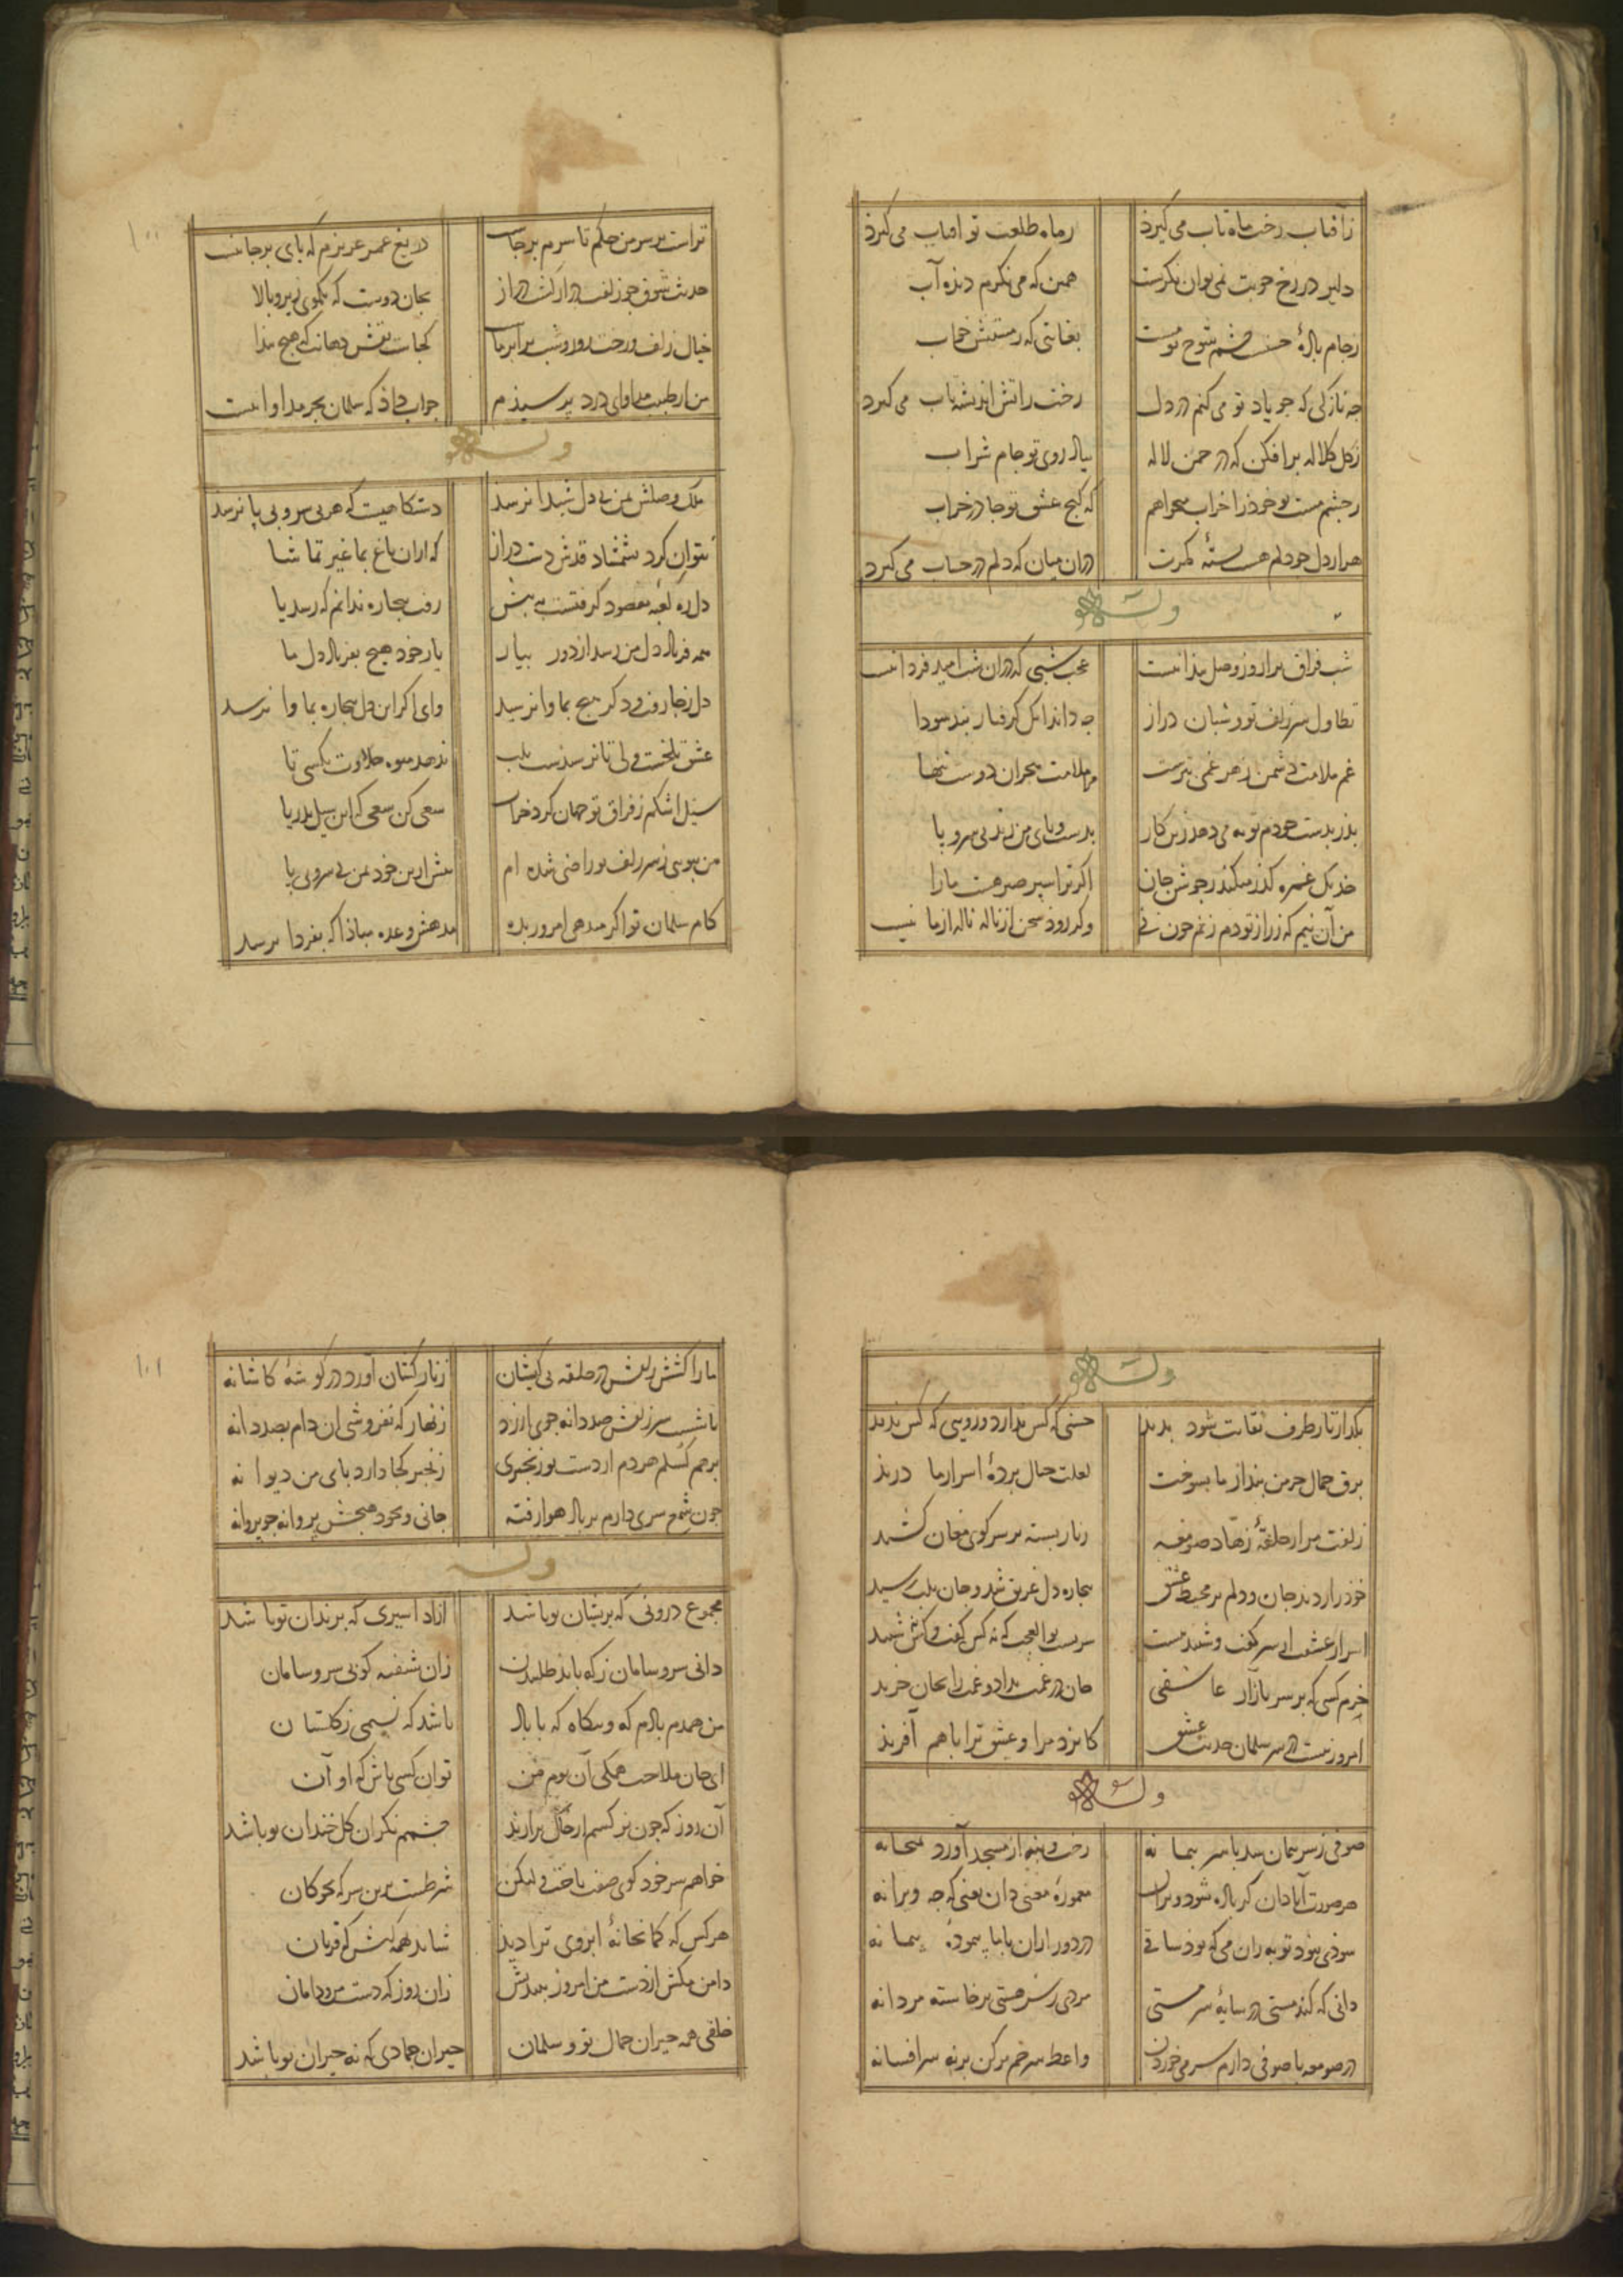 زآفتاب رخت ماه تاب می گیرد زماه طلعت تو آفتاب می گیرد
دلیر در رخ خوبت نمی توان نگرست همین که می نگرم دیده آب
زجام باده حسن چشم شوخ تو مست بغایتی که ز مستیش خواب
چه نازکی که چو یاد تو می کنم در دل رخت ز آتش اندیشه تاب می گیرد
زگل کلاله برافکن که در چمن لاله بیاد روی تو جام شراب
زچشم مست تو خود را خراب میخواهم که گنج عشق تو جا در خراب
هزار دل چو دلم هست بسته کمرت در آن میان که دلم در حساب می گیرد
وله
شب فراق ترا روز وصل پیدا نیست عجب شبی که در آن شب امید فردا نیست
تطاول سر زلف تو و شبان دراز چه داند آنکه گرفتار بند سودا
غم ملامت دشمن ز هر غمی بترست ملامت هجران دوست تنها
بدست خودم توبه می دهد زین کار بدست و پای من رند بی سر و پا
خدنگ غمزه گذر میکند ز جوشن جان اگر ترا سپر صبر هست ما را
من آن نیم که زراز تو دم زنم چون نی وگر رود سخن از ناله ناله از ما نیست
۱۰۰
تراست بر سر من حکم تا سرم برجاست دریغ عمر عزیزم که پای برجا نیست
حدیث شوق چو زلف دراز گشت دراز بجان دوست که یکموی زیر و بالا
خیال زلف و رخت روز و شب برابر ماست کجاست نقش دهانت که هیچ پیدا
من از طبیب مداوای درد پرسیدم جواب داد که سلمان بجز مدارا نیست
وله
ملک وصلش بمن بی دل شیدا نرسد دستگاهیست که هر بی سر و بی پا نرسد
نتوان کرد بشمشاد قدش دست دراز که ازان باغ بما غیر تماشا
دل ره کعبه مقصود گرفتست به پیش رفت بیچاره ندانم که رسد یا
همه فریاد دل من رسد از دور بیار یار خود هیچ بفریاد دل ما
دل ز جا رفت و دگر هیچ بماوا نرسید وای اگر این دل بیچاره بماوا نرسد
عشق تلخست ولی تا نرسد بلب ندهد میوه حلاوت بکسی تا
سیل اشکم ز فراق تو جهان کرد خراب سعی کن سعی که این سیل بدریا
من ببویی ز سر زلف تو راضی شده ام بیش ازین خود بمن بی سر و بی پا
کام سلمان تو اگر میدهی امروز بده مدهش وعده مبادا که بفردا نرسد
وله
بگذار تا ز طرف نقابت شود پدید حسنی که کس ندارد و رویی که کس ندید
برق جمال خرمن پندار ما بسوخت لعلت حال پرده اسرار ما درید
زلفت مرا ز حلقه زهاد صومعه زنار بسته بر سر کوی مغان کشید
خود را زدند جان و دلم بر محیط عشق بیچاره دل غریق شد و جان بلب رسید
اسرار عشقت ار سر گفت و شنید نیست سریست بوالعجب که نه کس گفت و کس شنید
خرم کسی که بر سر بازار عاشقی جان در غمت بداد و غمت را بجان خرید
امروز نیست در سر سلمان حدیث عشق کایزد مرا و عشق ترا با هم آفرید
وله
صوفی ز سر پیمان شد با سر پیمانه رخت و بنه از مسجد آورد بمیخانه
هر صورت آبادان کز باده شود ویران معموره معنی دان یعنی که چه ویرانه
سودی نبود توبه زان می که بود ساقی در دور ازان با ما پیموده پیمانه
دانی که کند مستی در سایه سرمستی مردی ز سر هستی برخاسته مردانه
در صومعه با صوفی دارم سر می خوردن واعظ سر خم برکن برنه سر افسانه
۱۰۱
ما را کشش زلفش در حلقه بی کیشان زنار کشان آورد در گوشه کاشانه
با شست سر زلفش صد دانه جوی ارزد زنهار که نفروشی آن دام بصد دانه
برهم گسلم هر دم از دست تو زنجیری زنجیر کجا دارد پای من دیوانه
چون شمع سری دارم بر باد هوا رفته جانی و بخود هیچش پروا نه چو پروانه
وله
مجموع درونی که پریشان تو باشد آزاد اسیری که بزندان تو باشد
دانی سر و سامان ز که باید طلبیدن زان شیفته کو بی سر و سامان
من همدم بادم که و بیگاه که با باد باشد که نسیمی ز گلستان
ای جان ملاحت همگی آن توم من تو آن کسی باش که او آن
آن روز که چون نرگسم از خاک برارند چشمم نگران گل خندان تو باشد
خواهم سر خود گوی صفت باخت ولیکن شرطست برین سر که بچوگان
هر کس که کمانخانه ابروی ترا دید شاید همه کیش که قربان
دامن مکش از دست من امروز بیندیش زان روز که دست من و دامان
خلقی همه حیران جمال تو و سلمان حیران جمادی که نه حیران تو باشد